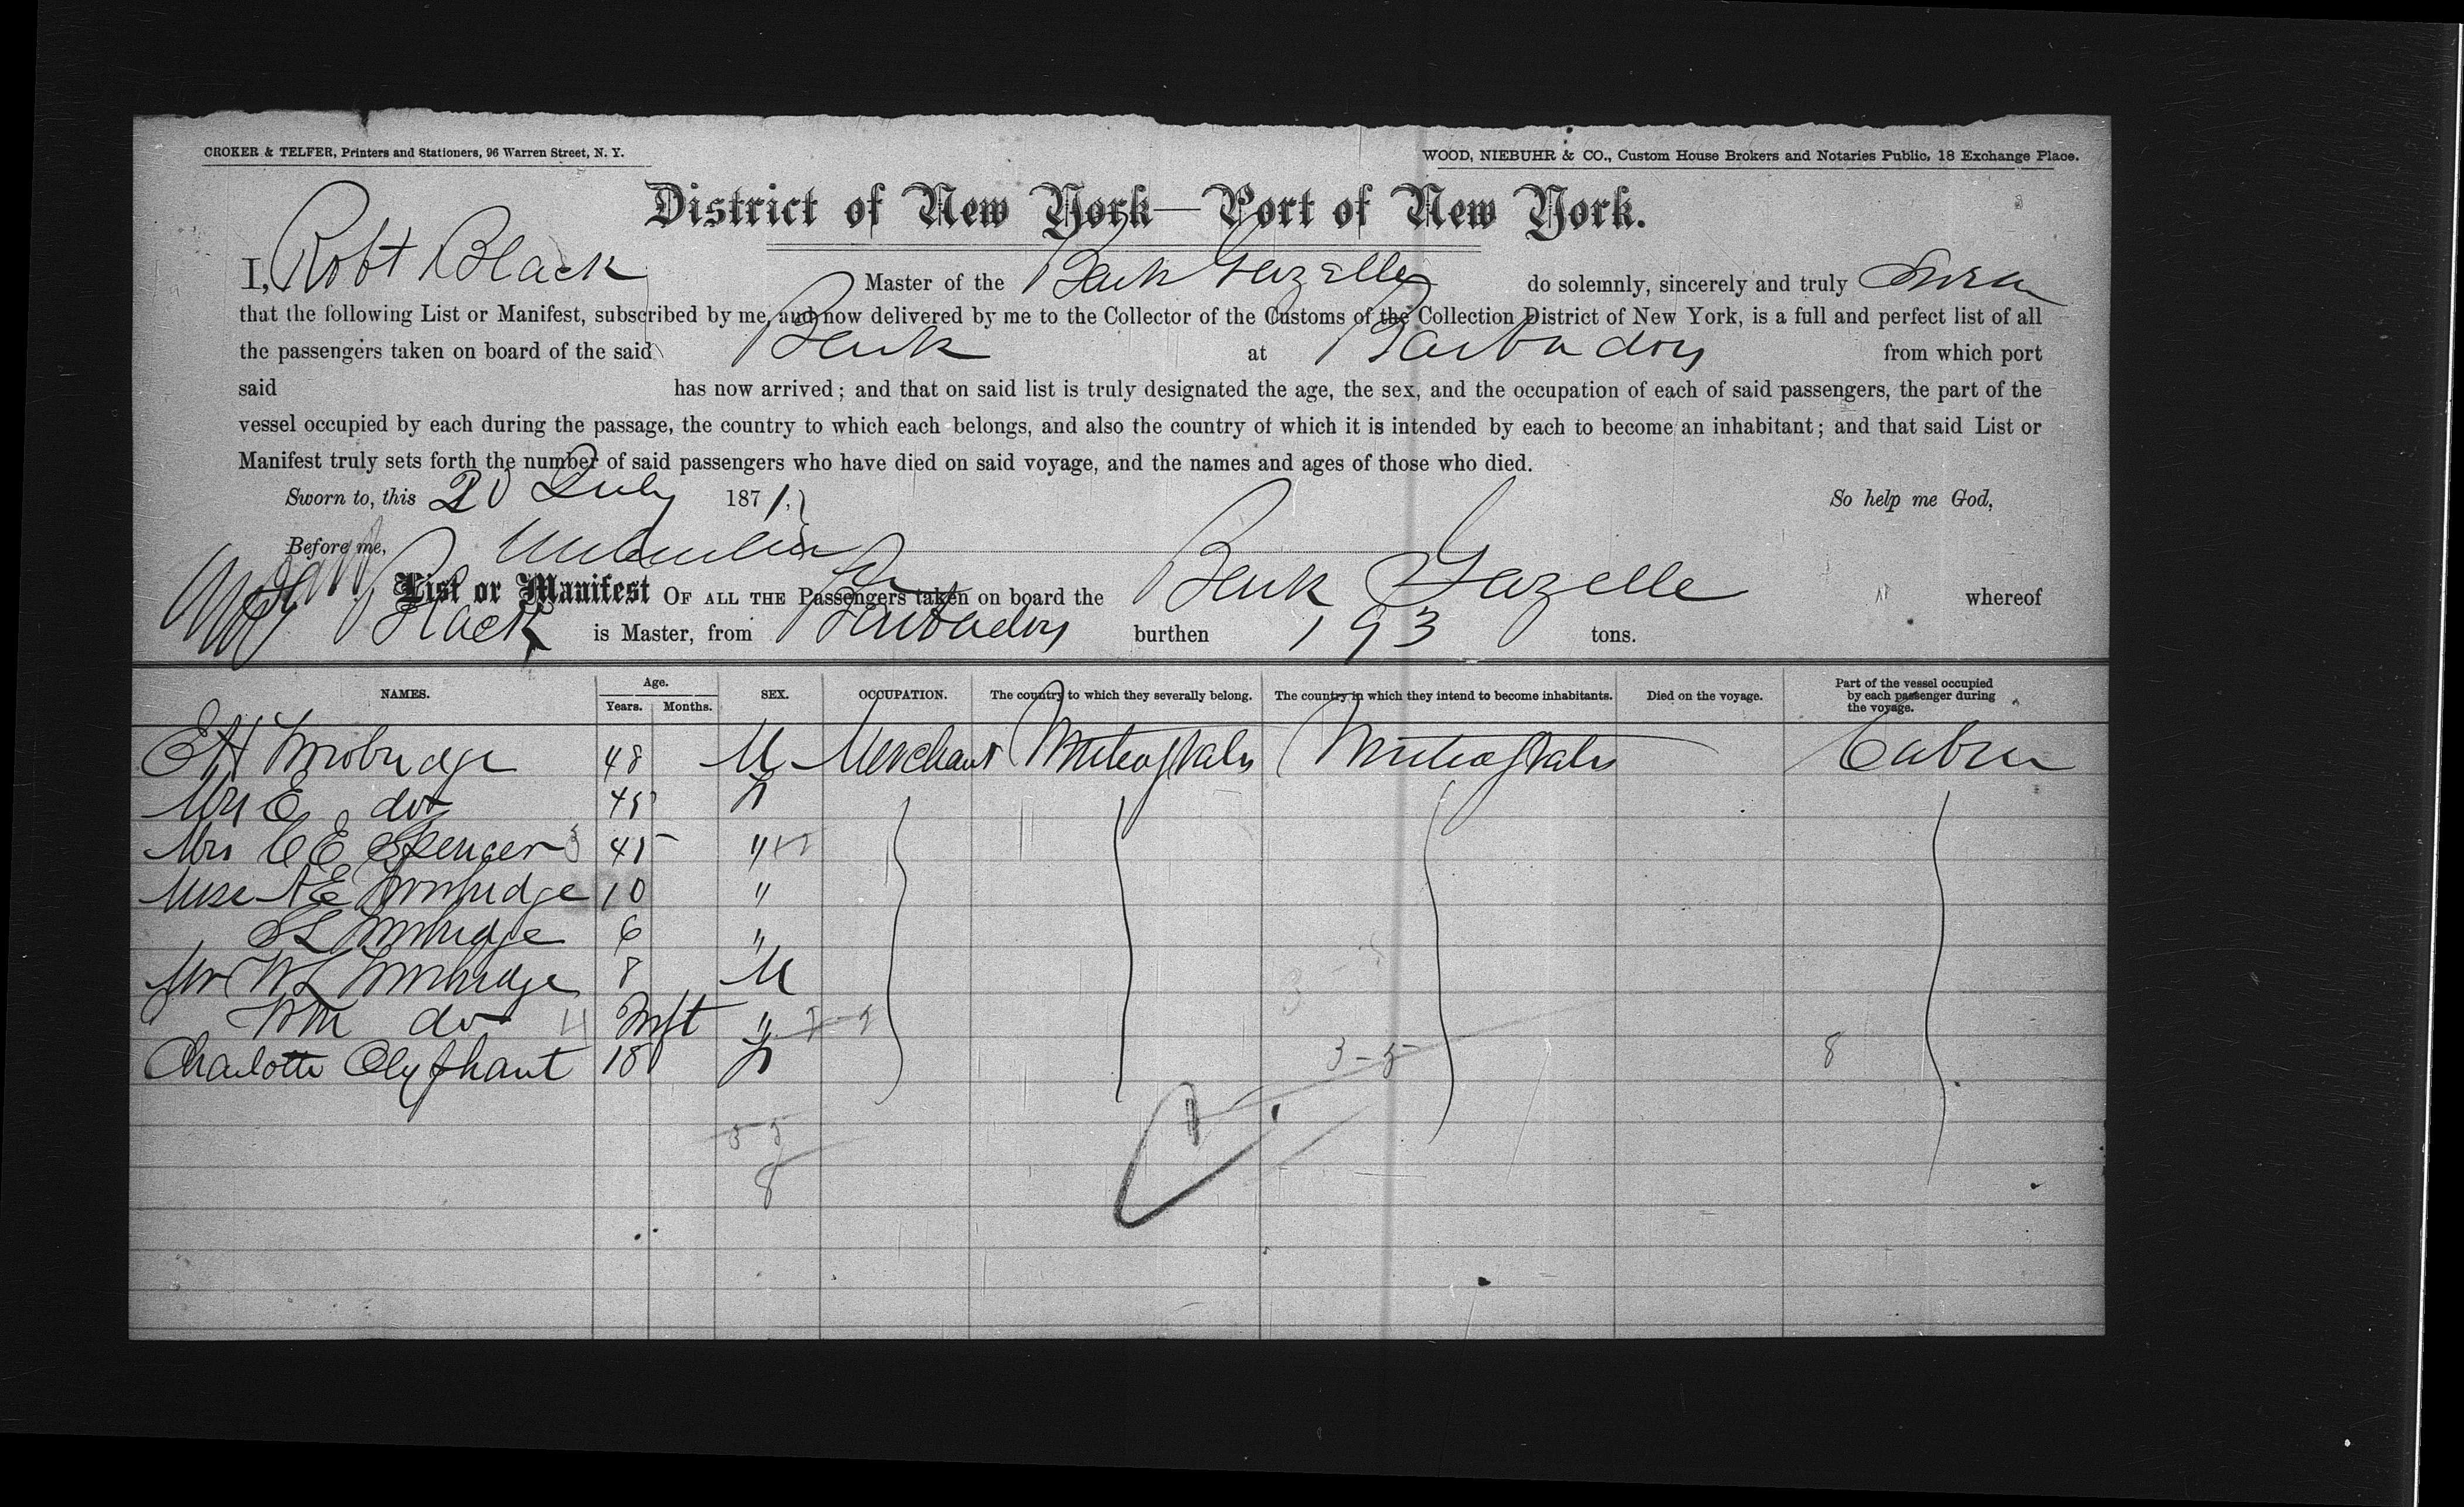 CROKER & TELFER, Printers and Stationers, 96 Warren Street, N. Y. WOOD, NIEBUHR & CO., Custom House Brokers and Notaries Public, 18 Exchange Place.
District of New York—Port of New York.
I, Robt Black Master of the Bark Gazelle do solemnly, sincerely and truly Swear
that the following List or Manifest, subscribed by me, and now delivered by me to the Collector of the Customs of the Collection District of New York, is a full and perfect list of all
the passengers taken on board of the said Bark at Barbados from which port
said has now arrived; and that on said list is truly designated the age, the sex, and the occupation of each of said passengers, the part of the
vessel occupied by each during the passage, the country to which each belongs, and also the country of which it is intended by each to become an inhabitant; and that said List or
Manifest truly sets forth the number of said passengers who have died on said voyage, and the names and ages of those who died.
Sworn to, this 20 July 1871. So help me God,
Before me,
List or Manifest OF ALL THE Passengers taken on board the Bark Gazelle whereof
Black is Master, from Barbados burthen 193 tons.
NAMES. Age. Years. Months. SEX. OCCUPATION. The country to which they severally belong. The country in which they intend to become inhabitants. Died on the voyage. Part of the vessel occupied by each passenger during the voyage.
EH Trowbridge 48 M Merchant United States United States Cabin
Mrs E do 45 F
Mrs CE Spencer 45 "
Miss AE Trowbridge 10 "
SL Trowbridge 6 "
Mr WL Trowbridge 8 M
Wm do Inft "
Charlotte Olyphant 18 F 3-5 8
8